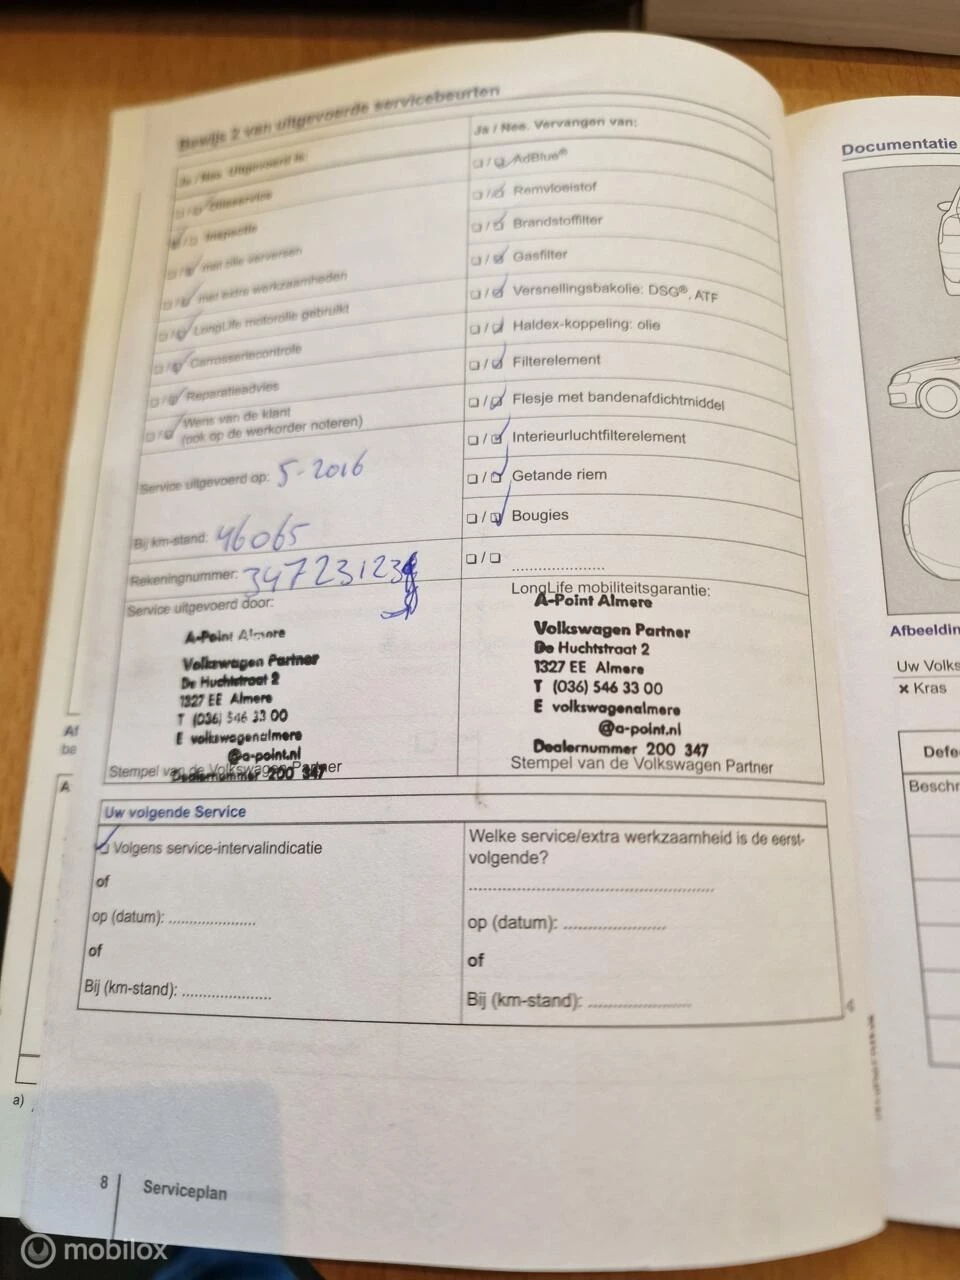 Bewijs 2 van uitgevoerde servicebeurten
Ja / Nee. Uitgevoerd is:
Olieservice
Inspectie
met olie verversen
met extra werkzaamheden
LongLife motorolie gebruikt
Carrosseriecontrole
Reparatieadvies
Wens van de klant
(ook op de werkorder noteren)
Service uitgevoerd op: 5-2016
Bij km-stand: 46065
Rekeningnummer:
Service uitgevoerd door:
A-Point Almere
Volkswagen Partner
De Huchtstraat 2
1327 EE Almere
T (036) 546 33 00
E volkswagenalmere
@a-point.nl
Dealernummer 200 347
Stempel van de Volkswagen Partner
Ja / Nee. Vervangen van:
AdBlue®
Remvloeistof
Brandstoffilter
Gasfilter
Versnellingsbakolie: DSG®, ATF
Haldex-koppeling: olie
Filterelement
Flesje met bandenafdichtmiddel
Interieurluchtfilterelement
Getande riem
Bougies
LongLife mobiliteitsgarantie:
A-Point Almere
Volkswagen Partner
De Huchtstraat 2
1327 EE Almere
T (036) 546 33 00
E volkswagenalmere
@a-point.nl
Dealernummer 200 347
Stempel van de Volkswagen Partner
Uw volgende Service
Volgens service-intervalindicatie
of
op (datum): ......................
of
Bij (km-stand): ......................
Welke service/extra werkzaamheid is de eerst-
volgende?
............................................................
op (datum): .........................
of
Bij (km-stand): .........................
8 Serviceplan
Documentatie
Afbeeldin
Uw Volks
× Kras
Defe
Beschr
Af
be
A
a)
mobilox